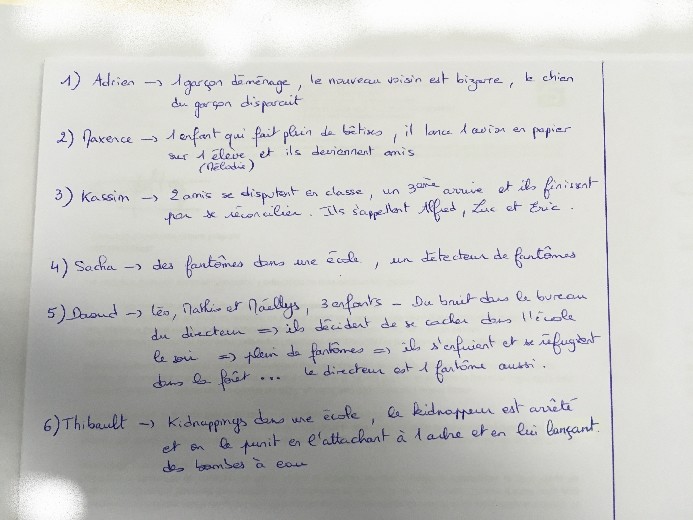 1) Adrien → 1 garçon déménage, le nouveau voisin est bizarre, le chien
du garçon disparait
2) Maxence → 1 enfant qui fait plein de bêtises, il lance 1 avion en papier
sur 1 élève et ils deviennent amis
(Mélodie)
3) Kassim → 2 amis se disputent en classe, un 3ème arrive et ils finissent
par se réconcilier. Ils s'appellent Alfred, Luc et Eric.
4) Sacha → des fantômes dans une école, un détecteur de fantômes
5) Daoud → Léo, Mathis et Maëllys, 3 enfants - Du bruit dans le bureau
du directeur => ils décident de se cacher dans l'école
le soir => plein de fantômes => ils s'enfuient et se réfugient
dans la forêt ... le directeur est 1 fantôme aussi.
6) Thibault → Kidnappings dans une école, le kidnappeur est arrêté
et on le punit en l'attachant à 1 arbre et en lui lançant
des bombes à eau